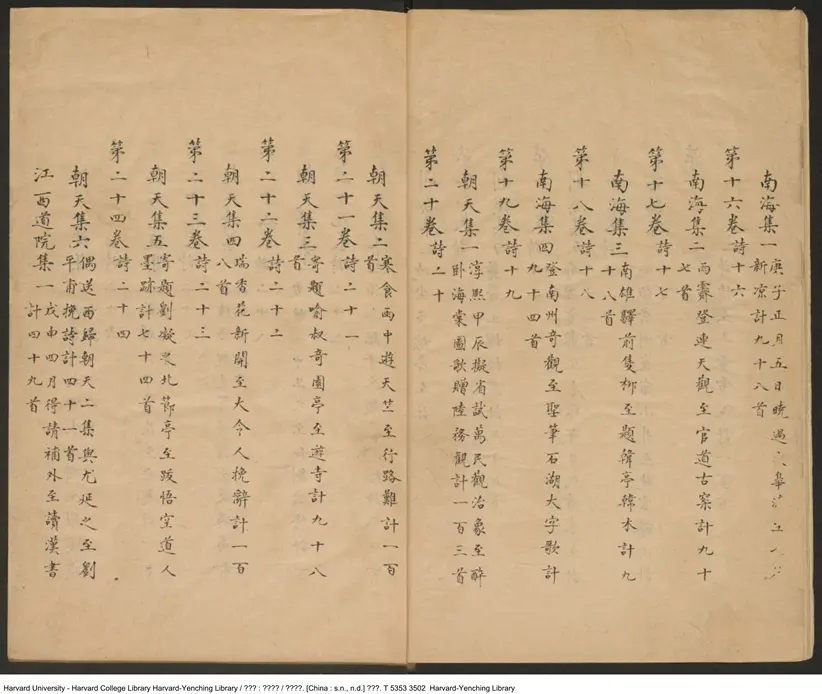 南海集一庚子正月五日曉過
新凉計九十八首
第十六卷詩十六
南海集二雨霽登連天觀至官道古案計九十
七首
第十七卷詩十七
南海集三南雄驛前隻柳至題韓亭韓木計九
十八首
第十八卷詩十八
南海集四登南州奇觀至聖筆石湖大字歌計
九十四首
第十九卷詩十九
朝天集一淳熙甲辰擬省試萬民觀治象至醉
卧海棠圖歌贈陸務觀計一百三首
第二十卷詩二十
朝天集二寒食雨中遊天竺至行路難計一百
首
第二十一卷詩二十一
朝天集三寄題喻叔奇園亭至遊寺計九十八
首
第二十二卷詩二十二
朝天集四瑞香花新開至大令人挽辭計一百
八首
第二十三卷詩二十三
朝天集五寄題劉凝之北節亭至跋悟空道人
墨蹟計七十四首
第二十四卷詩二十四
朝天集六偶送西歸朝天二集與尤延之至劉
平甫挽詩計四十一首
江西道院集一戊申四月得請補外至讀漢書
計四十九首
Harvard University - Harvard College Library Harvard-Yenching Library / ??? : ???? / ????. [China : s.n., n.d.] ???. T 5353 3502 Harvard-Yenching Library